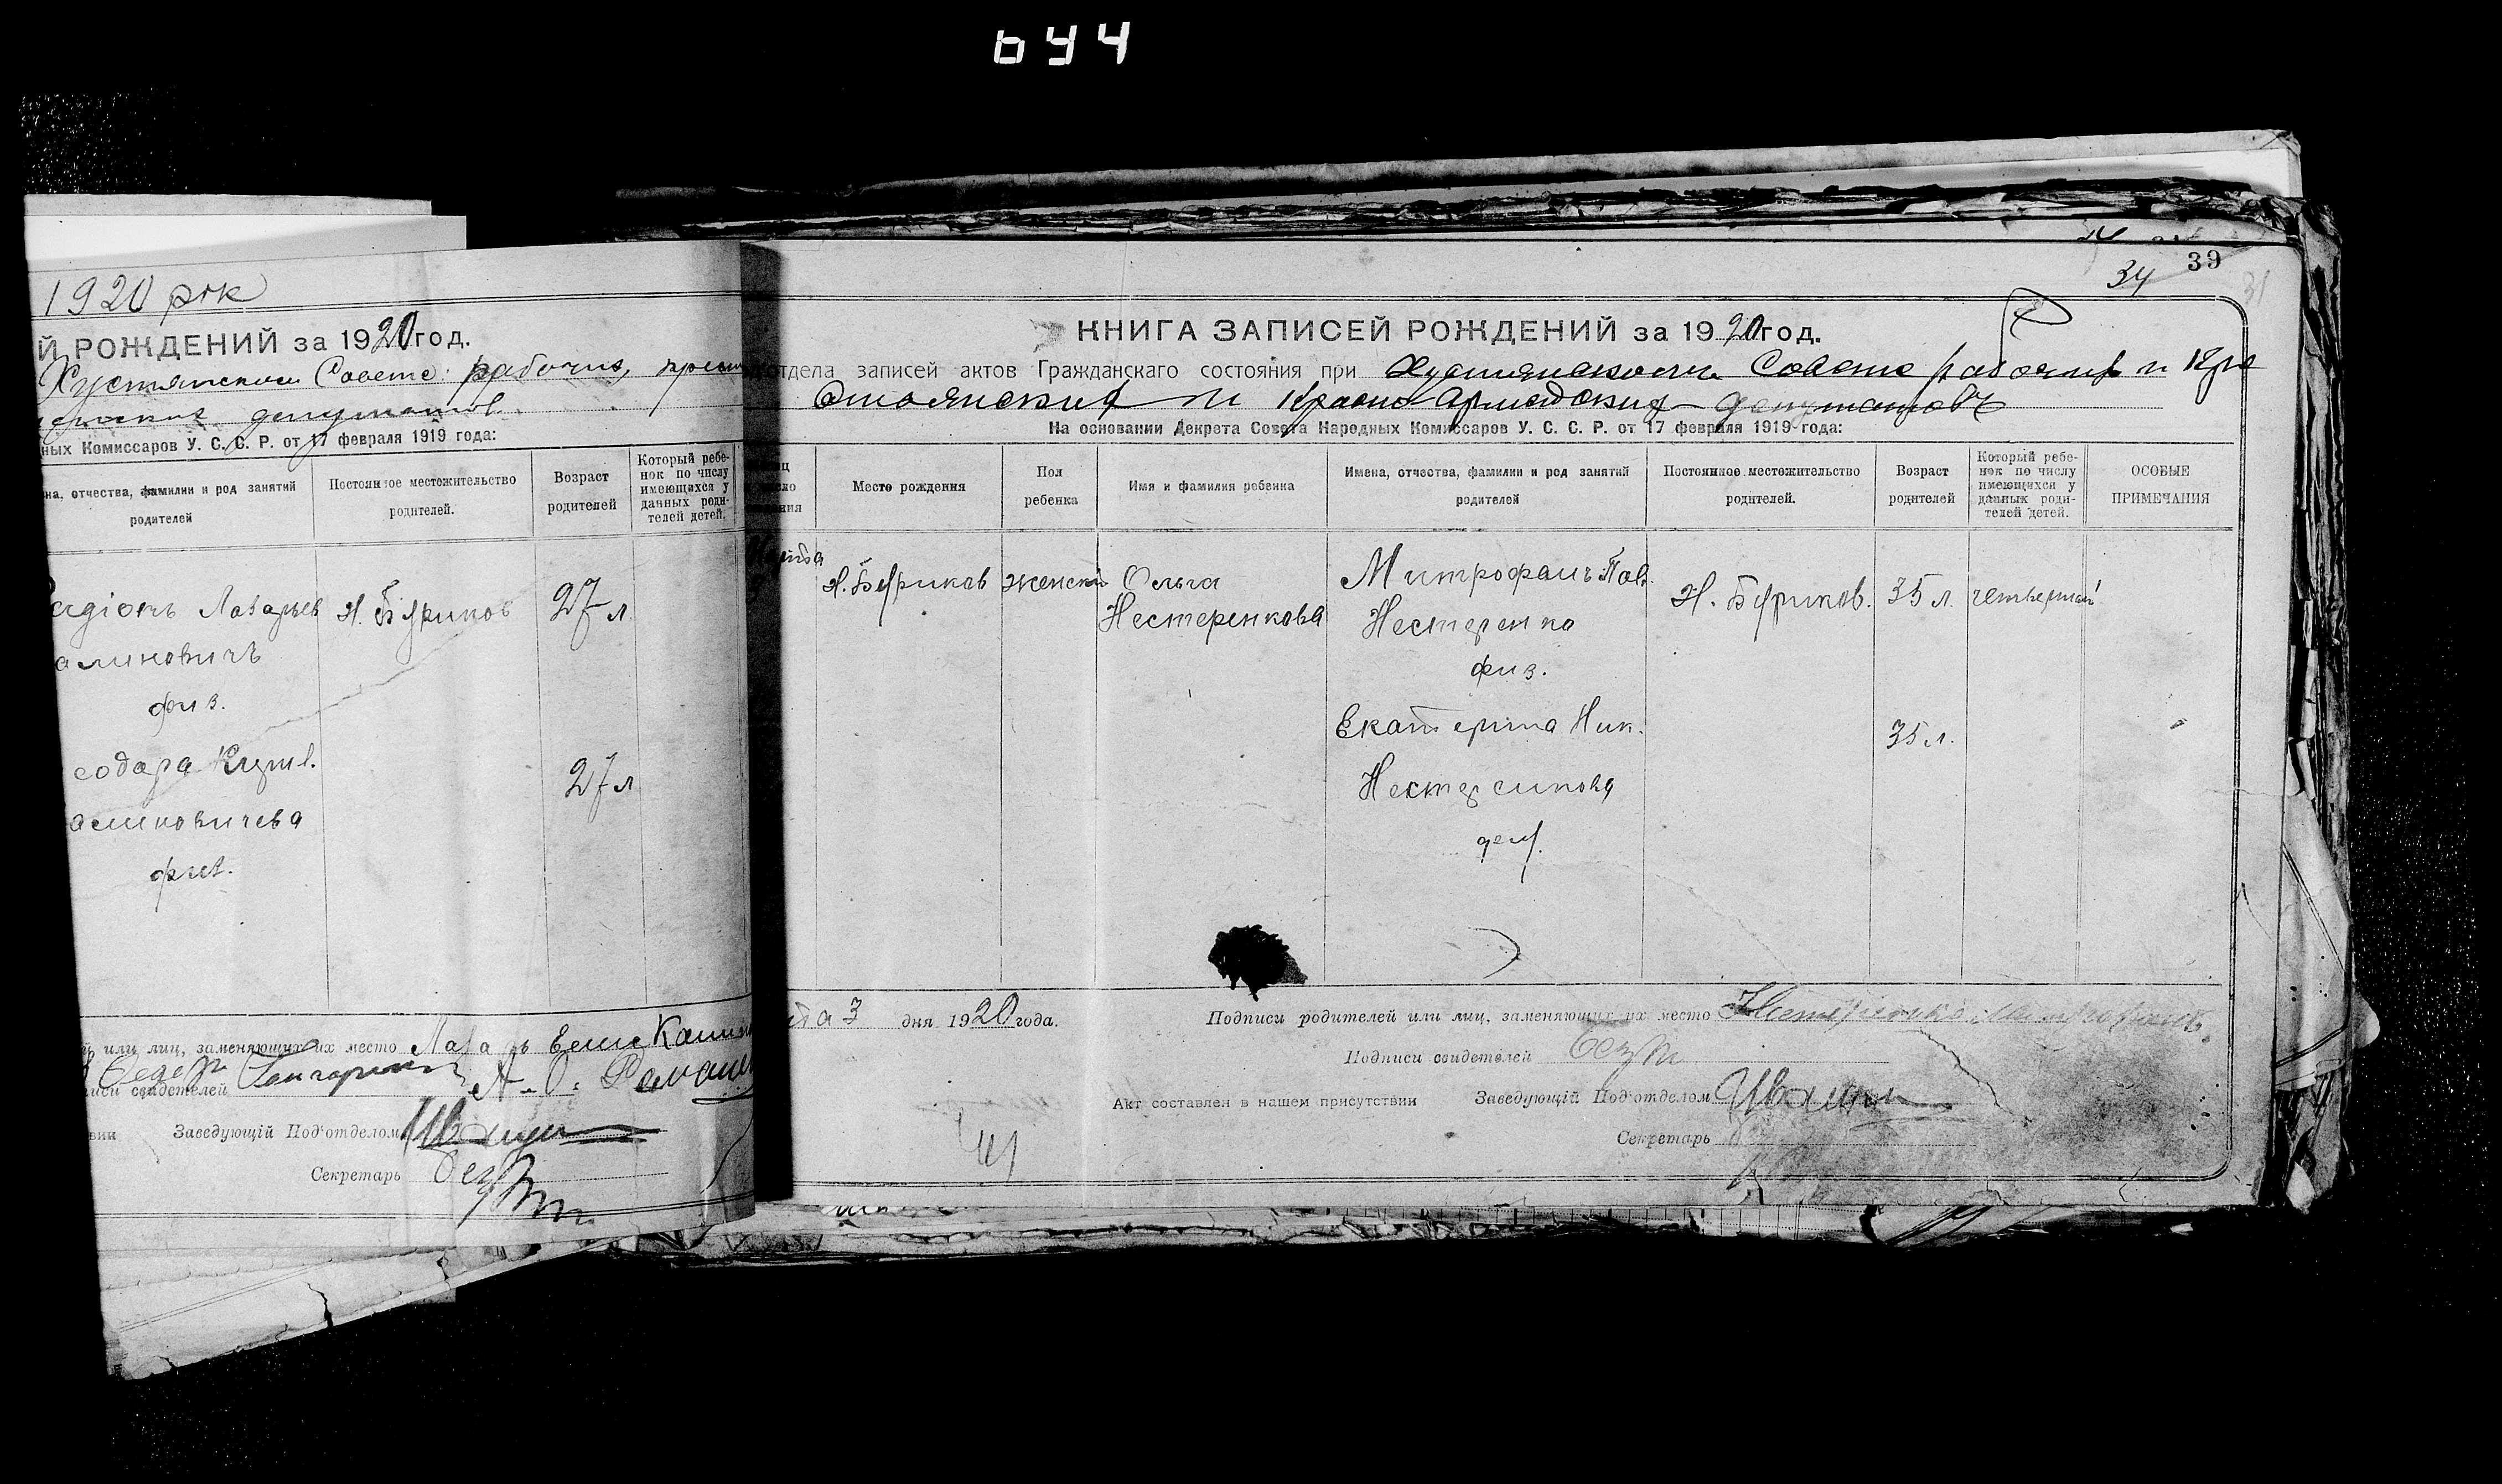 644
1920 рік
Й РОЖДЕНИЙ за 1920 год.
Хустянском Совете рабочих,
депутатов.
ных Комиссаров У. С. С. Р. от 17 февраля 1919 года:
на, отчества, фамилии и род занятий родителей
Постоянное местожительство родителей.
Возраст родителей
Который ребенок по числу имеющихся у данных родителей детей.
Лазарьев
Н. Буриков
27 л.
алиновичъ
физ.
еодора
27 л
алиновичева
физ.
й или лиц, заменяющих их место
иси свидетелей
вии Заведующій Под'отделом
Секретарь
39
34
31
КНИГА ЗАПИСЕЙ РОЖДЕНИЙ за 1920 год.
отдела записей актов Гражданскаго состояния при Хустянском Совете рабочих и Кре
стьянских и Красно-Армейских депутатовъ
На основании Декрета Совета Народных Комиссаров У. С. С. Р. от 17 февраля 1919 года:
Место рождения
Пол ребенка
Имя и фамилия ребенка
Имена, отчества, фамилии и род занятий родителей
Постоянное местожительство родителей.
Возраст родителей
Который ребенок по числу имеющихся у данных родителей детей.
ОСОБЫЕ ПРИМЕЧАНИЯ
Н. Буриков
женски
Ольга
Нестеренкова
Митрофанъ Пав.
Нестеренко
физ.
Н. Буриков.
35 л.
четвертый
Екатерина Ник.
Нестеренкова
35 л.
та 3 дня 1920 года.
Подписи родителей или лиц, заменяющих их место Нестеренко
Подписи свидетелей
Акт составлен в нашем присутствии Заведующій Под'отделом
Секретарь